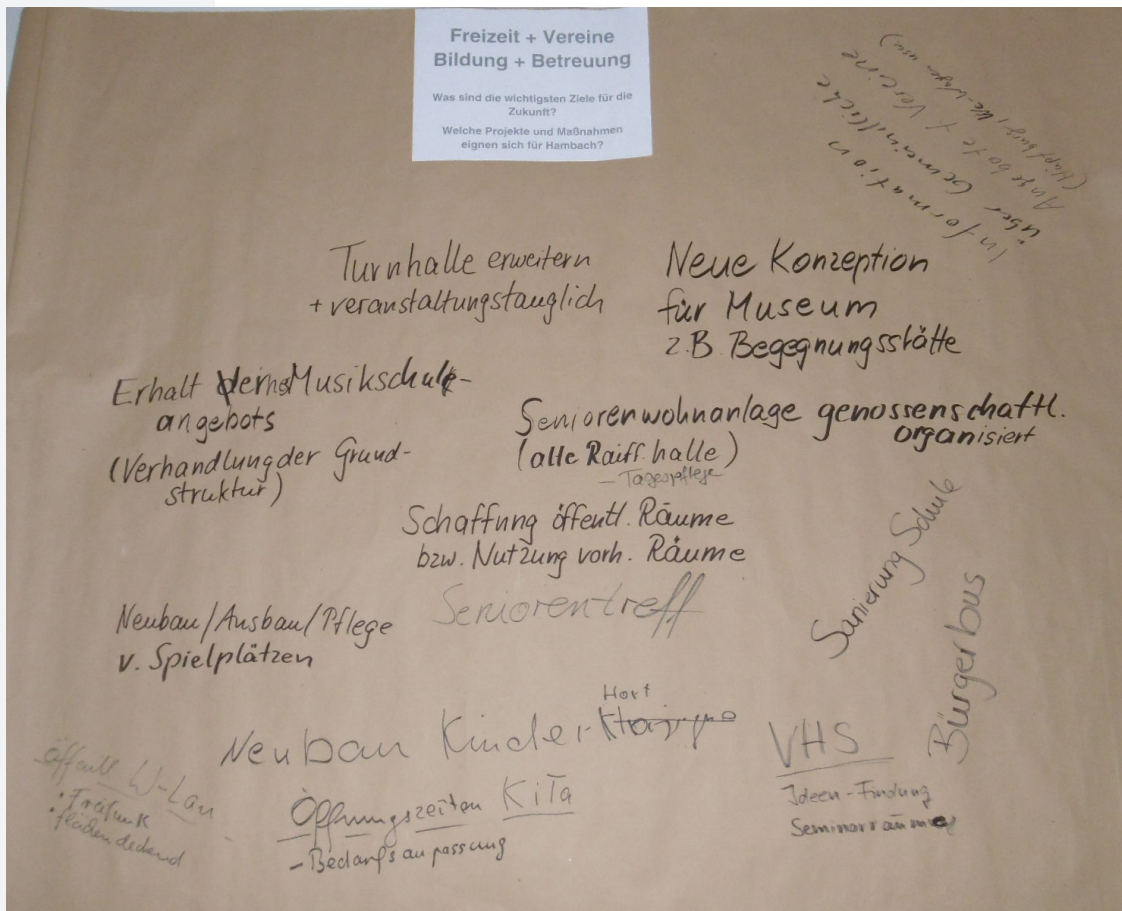 Freizeit + Vereine
Bildung + Betreuung
Was sind die wichtigsten Ziele für die
Zukunft?
Welche Projekte und Maßnahmen
eignen sich für Hambach?
Information
über Gemeindliche
Angebote + Vereine
Turnhalle erweitern
+ veranstaltungstauglich
Neue Konzeption
für Museum
z.B. Begegnungsstätte
Erhalt Musikschul-
angebots
(Verhandlung der Grund-
struktur)
Seniorenwohnanlage genossenschaftl.
organisiert
(alte Raiff.halle)
- Tagespflege
Schaffung öffentl. Räume
bzw. Nutzung vorh. Räume
Seniorentreff
Sanierung Schule
Bürgerbus
Neubau/Ausbau/Pflege
v. Spielplätzen
Neubau Kinder Hort
VHS
Ideen-Findung
Seminarräume
öffentl W-Lan
• Freifunk
• flächendeckend
Öffnungszeiten KiTa
- Bedarfsanpassung